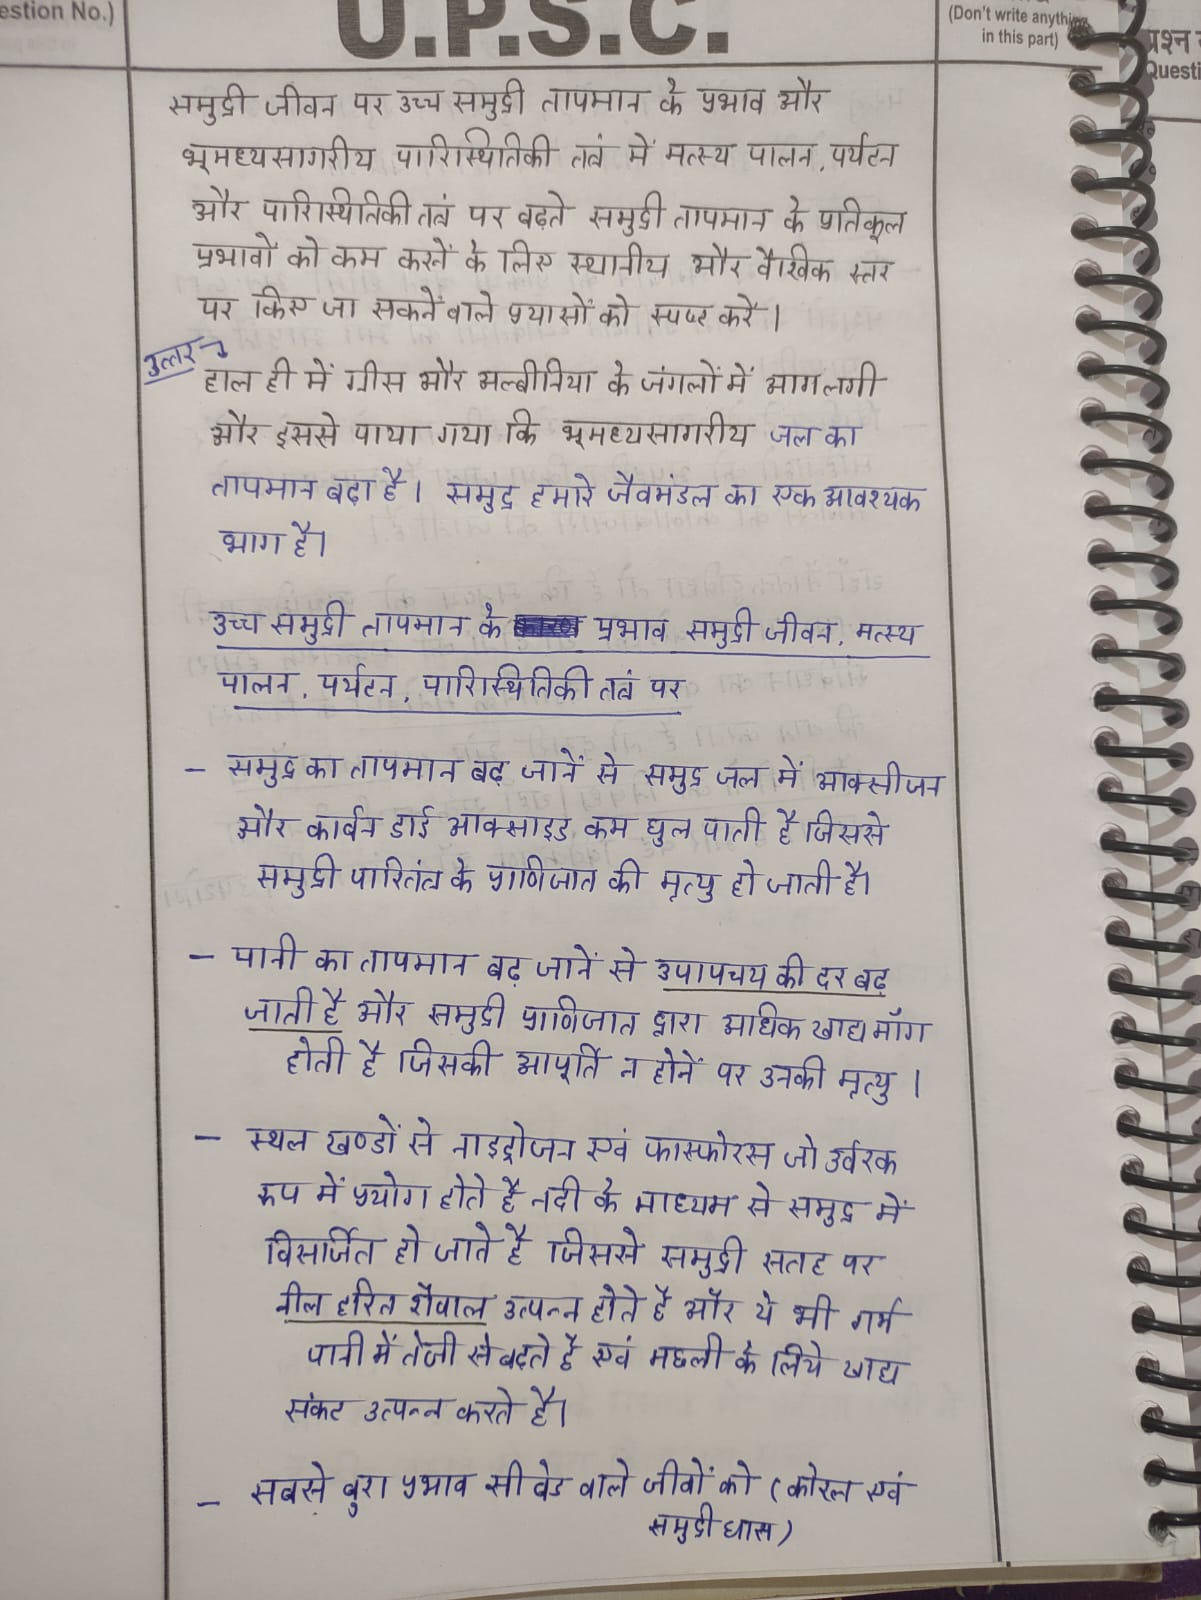 estion No.)
U.P.S.C.
(Don't write anything
in this part)
प्रश्न
Questi
समुद्री जीवन पर उच्च समुद्री तापमान के प्रभाव और
भूमध्यसागरीय पारिस्थितिकी तत्रं में मत्स्य पालन, पर्यटन
और पारिस्थितिकी तत्रं पर बढ़ते समुद्री तापमान के प्रतिकूल
प्रभावों को कम करनें के लिए स्थानीय और वैश्विक स्तर
पर किए जा सकनें वाले प्रयासों को स्पष्ट करें।
उत्तर→
हाल ही में ग्रीस और अल्बीनिया के जंगलों में आग लगी
और इससे पाया गया कि भूमध्यसागरीय जल का
तापमान बढ़ा है। समुद्र हमारे जैवमंडल का एक आवश्यक
भाग है।
उच्च समुद्री तापमान के प्रभाव समुद्री जीवन, मत्स्य
पालन, पर्यटन, पारिस्थितिकी तत्रं पर
– समुद्र का तापमान बढ़ जानें से समुद्र जल में आक्सीजन
और कार्बन डाई आक्साइड कम घुल पाती है जिससे
समुद्री पारितंत्र के प्राणिजात की मृत्यु हो जाती है।
– पानी का तापमान बढ़ जानें से उपापचय की दर बढ़
जाती है और समुद्री प्राणिजात द्वारा अधिक खाद्य माँग
होती है जिसकी आपूर्ति न होनें पर उनकी मृत्यु।
– स्थल खण्डों से नाइट्रोजन एवं फास्फोरस जो उर्वरक
रूप में प्रयोग होते है नदी के माध्यम से समुद्र में
विसर्जित हो जाते है जिससे समुद्री सतह पर
नील हरित शैवाल उत्पन्न होते है और ये भी गर्म
पानी में तेजी से बढ़ते है एवं मछली के लिये खाद्य
संकट उत्पन्न करते है।
– सबसे बुरा प्रभाव सी बेड वाले जीवों को (कोरल एवं
समुद्री घास)